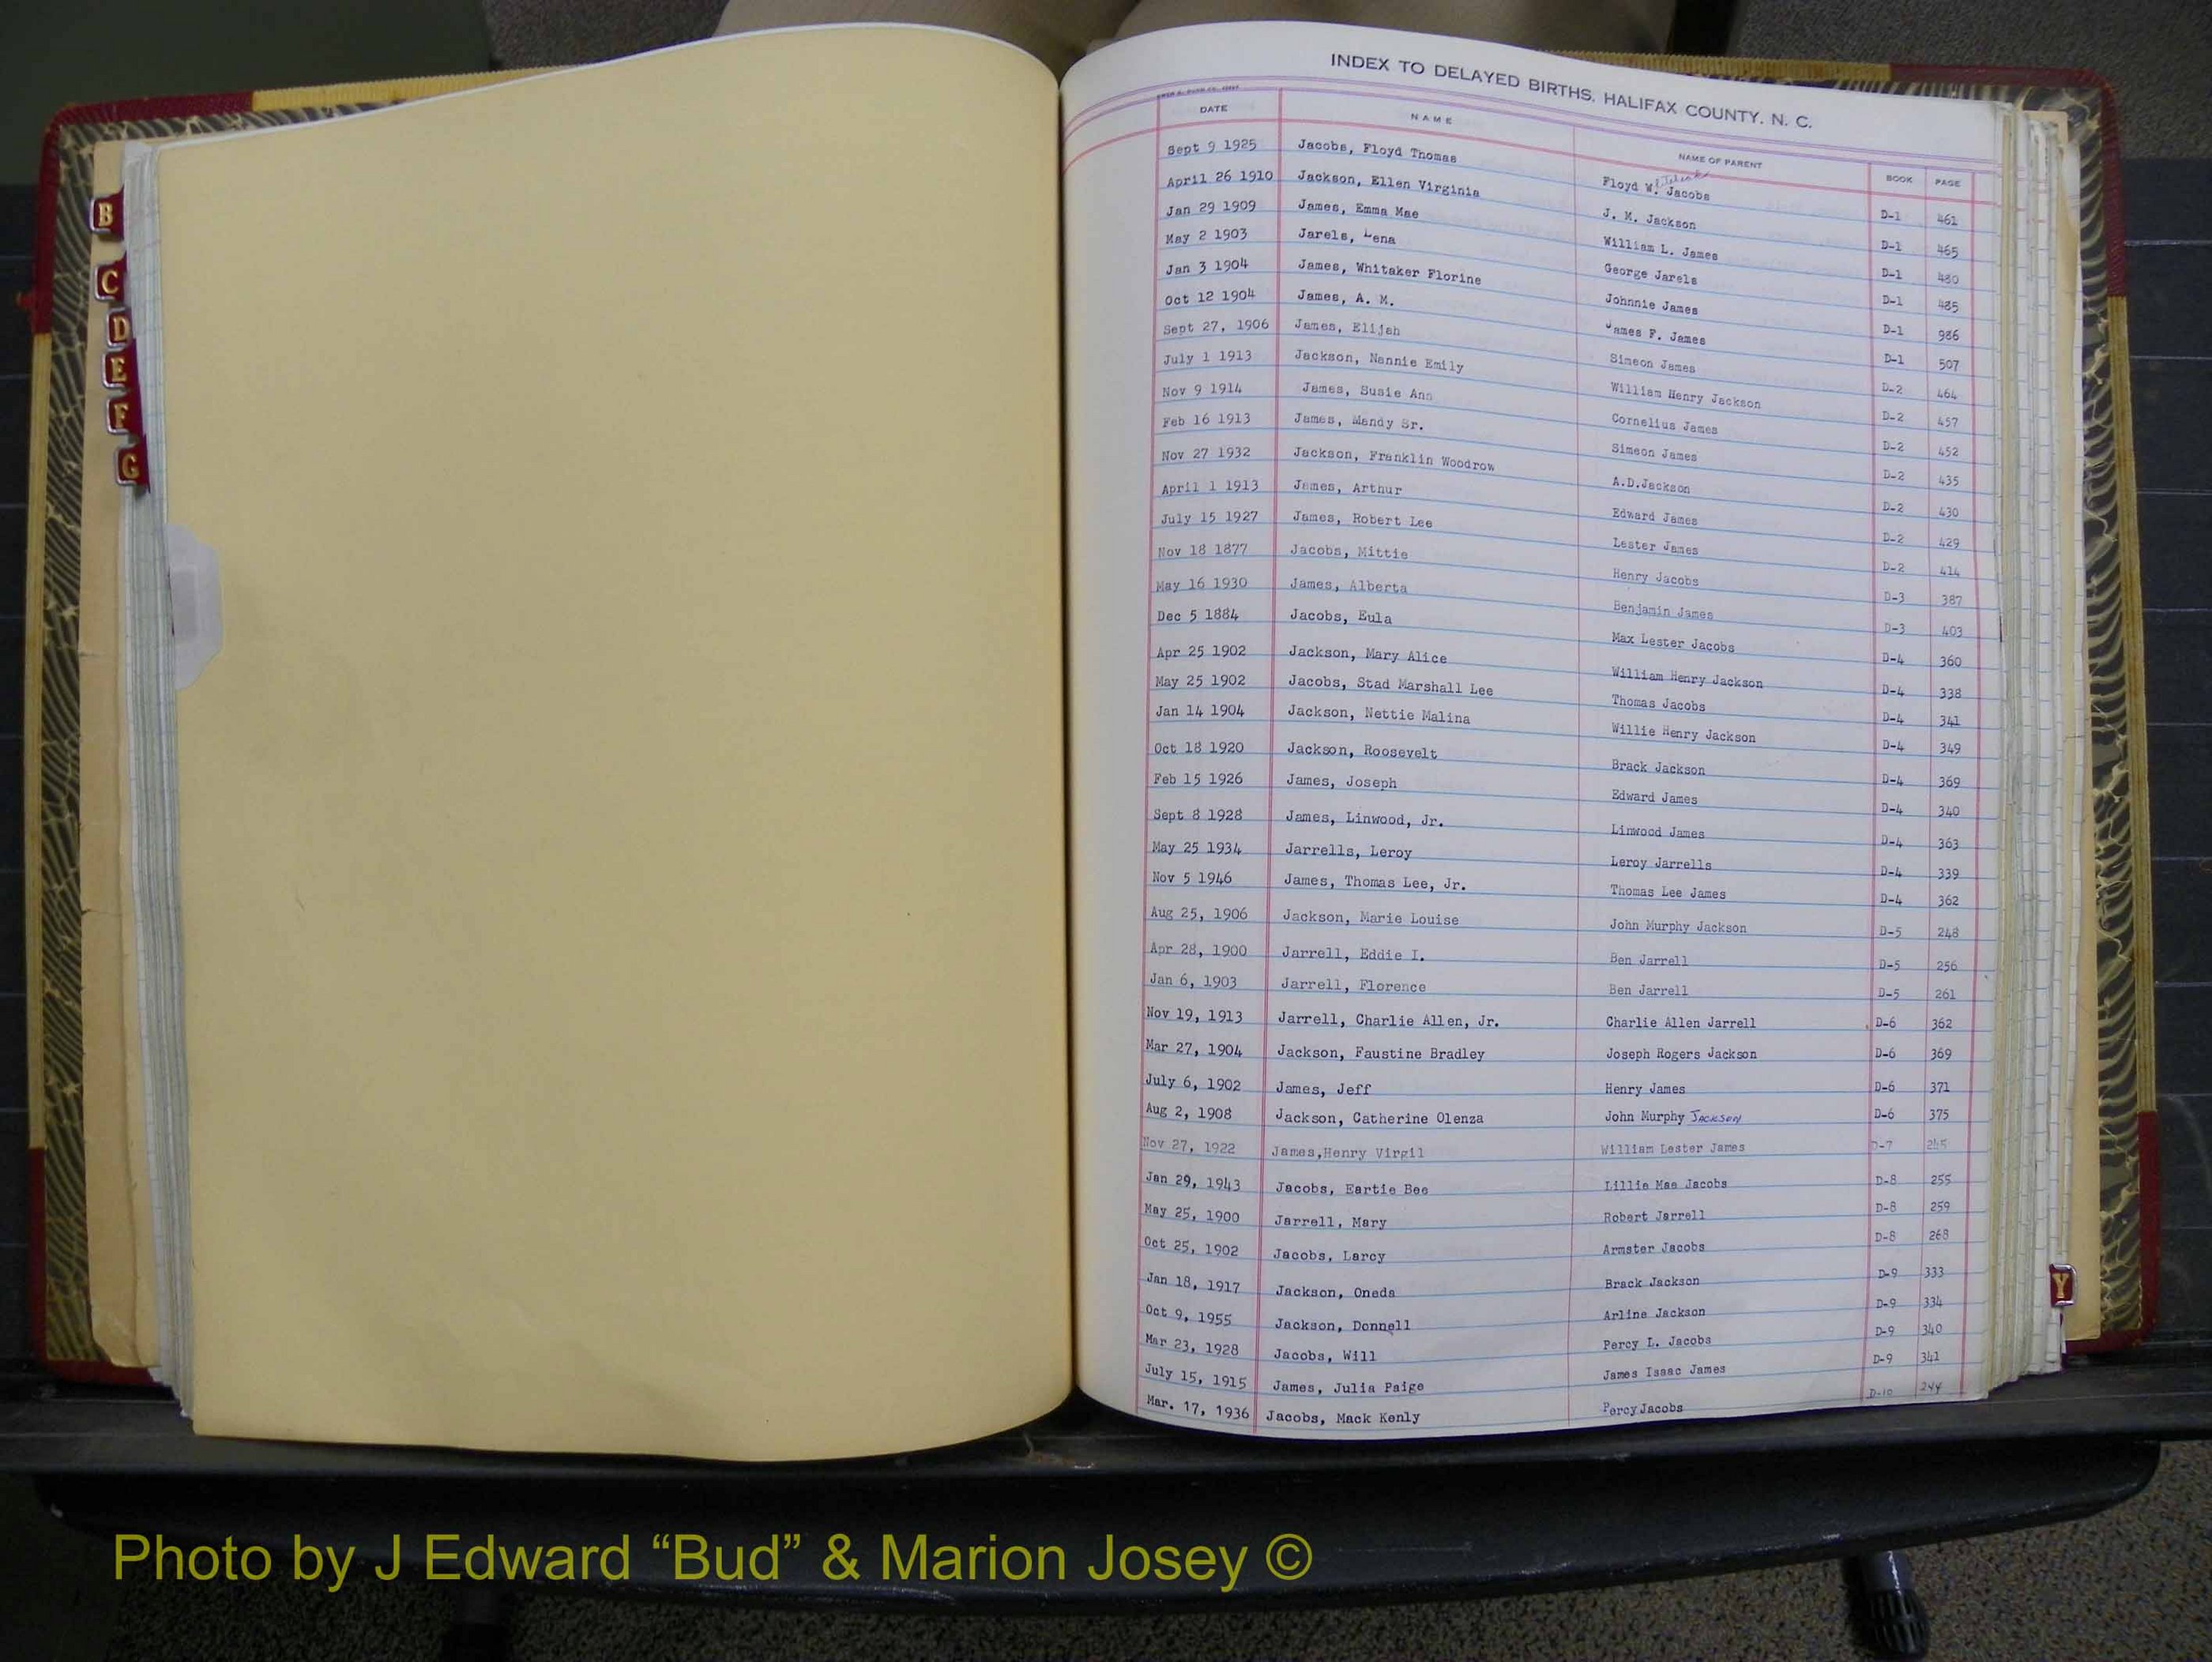 INDEX TO DELAYED BIRTHS, HALIFAX COUNTY, N. C.
DATE NAME NAME OF PARENT BOOK PAGE
Sept 9 1925 Jacobs, Floyd Thomas Floyd W. Jacobs D-1 461
April 26 1910 Jackson, Ellen Virginia J. M. Jackson D-1 465
Jan 29 1909 James, Emma Mae William L. James D-1 480
May 2 1903 Jarels, Lena George Jarels D-1 485
Jan 3 1904 James, Whitaker Florine Johnnie James D-1 986
Oct 12 1904 James, A. M. James F. James D-1 507
Sept 27, 1906 James, Elijah Simeon James D-2 464
July 1 1913 Jackson, Nannie Emily William Henry Jackson D-2 457
Nov 9 1914 James, Susie Ann Cornelius James D-2 452
Feb 16 1913 James, Mandy Sr. Simeon James D-2 435
Nov 27 1932 Jackson, Franklin Woodrow A.D.Jackson D-2 430
April 1 1913 James, Arthur Edward James D-2 429
July 15 1927 James, Robert Lee Lester James D-2 414
Nov 18 1877 Jacobs, Mittie Henry Jacobs D-3 387
May 16 1930 James, Alberta Benjamin James D-3 403
Dec 5 1884 Jacobs, Eula Max Lester Jacobs D-4 360
Apr 25 1902 Jackson, Mary Alice William Henry Jackson D-4 338
May 25 1902 Jacobs, Stad Marshall Lee Thomas Jacobs D-4 341
Jan 14 1904 Jackson, Nettie Malina Willie Henry Jackson D-4 349
Oct 18 1920 Jackson, Roosevelt Brack Jackson D-4 369
Feb 15 1926 James, Joseph Edward James D-4 340
Sept 8 1928 James, Linwood, Jr. Linwood James D-4 363
May 25 1934 Jarrells, Leroy Leroy Jarrells D-4 339
Nov 5 1946 James, Thomas Lee, Jr. Thomas Lee James D-4 362
Aug 25, 1906 Jackson, Marie Louise John Murphy Jackson D-5 248
Apr 28, 1900 Jarrell, Eddie I. Ben Jarrell D-5 256
Jan 6, 1903 Jarrell, Florence Ben Jarrell D-5 261
Nov 19, 1913 Jarrell, Charlie Allen, Jr. Charlie Allen Jarrell D-6 362
Mar 27, 1904 Jackson, Faustine Bradley Joseph Rogers Jackson D-6 369
July 6, 1902 James, Jeff Henry James D-6 371
Aug 2, 1908 Jackson, Catherine Olenza John Murphy Jackson D-6 375
Nov 27, 1922 James,Henry Virgil William Lester James D-7
Jan 29, 1943 Jacobs, Eartie Bee Lillie Mae Jacobs D-8 255
May 25, 1900 Jarrell, Mary Robert Jarrell D-8 259
Oct 25, 1902 Jacobs, Larcy Armster Jacobs D-8 268
Jan 18, 1917 Jackson, Oneda Brack Jackson D-9 333
Oct 9, 1955 Jackson, Donnell Arline Jackson D-9 334
Mar 23, 1928 Jacobs, Will Percy L. Jacobs D-9 340
July 15, 1915 James, Julia Paige James Isaac James D-9 341
Mar. 17, 1936 Jacobs, Mack Kenly Percy Jacobs D-10 244
B
C
D
E
F
G
Y
Photo by J Edward “Bud” & Marion Josey ©